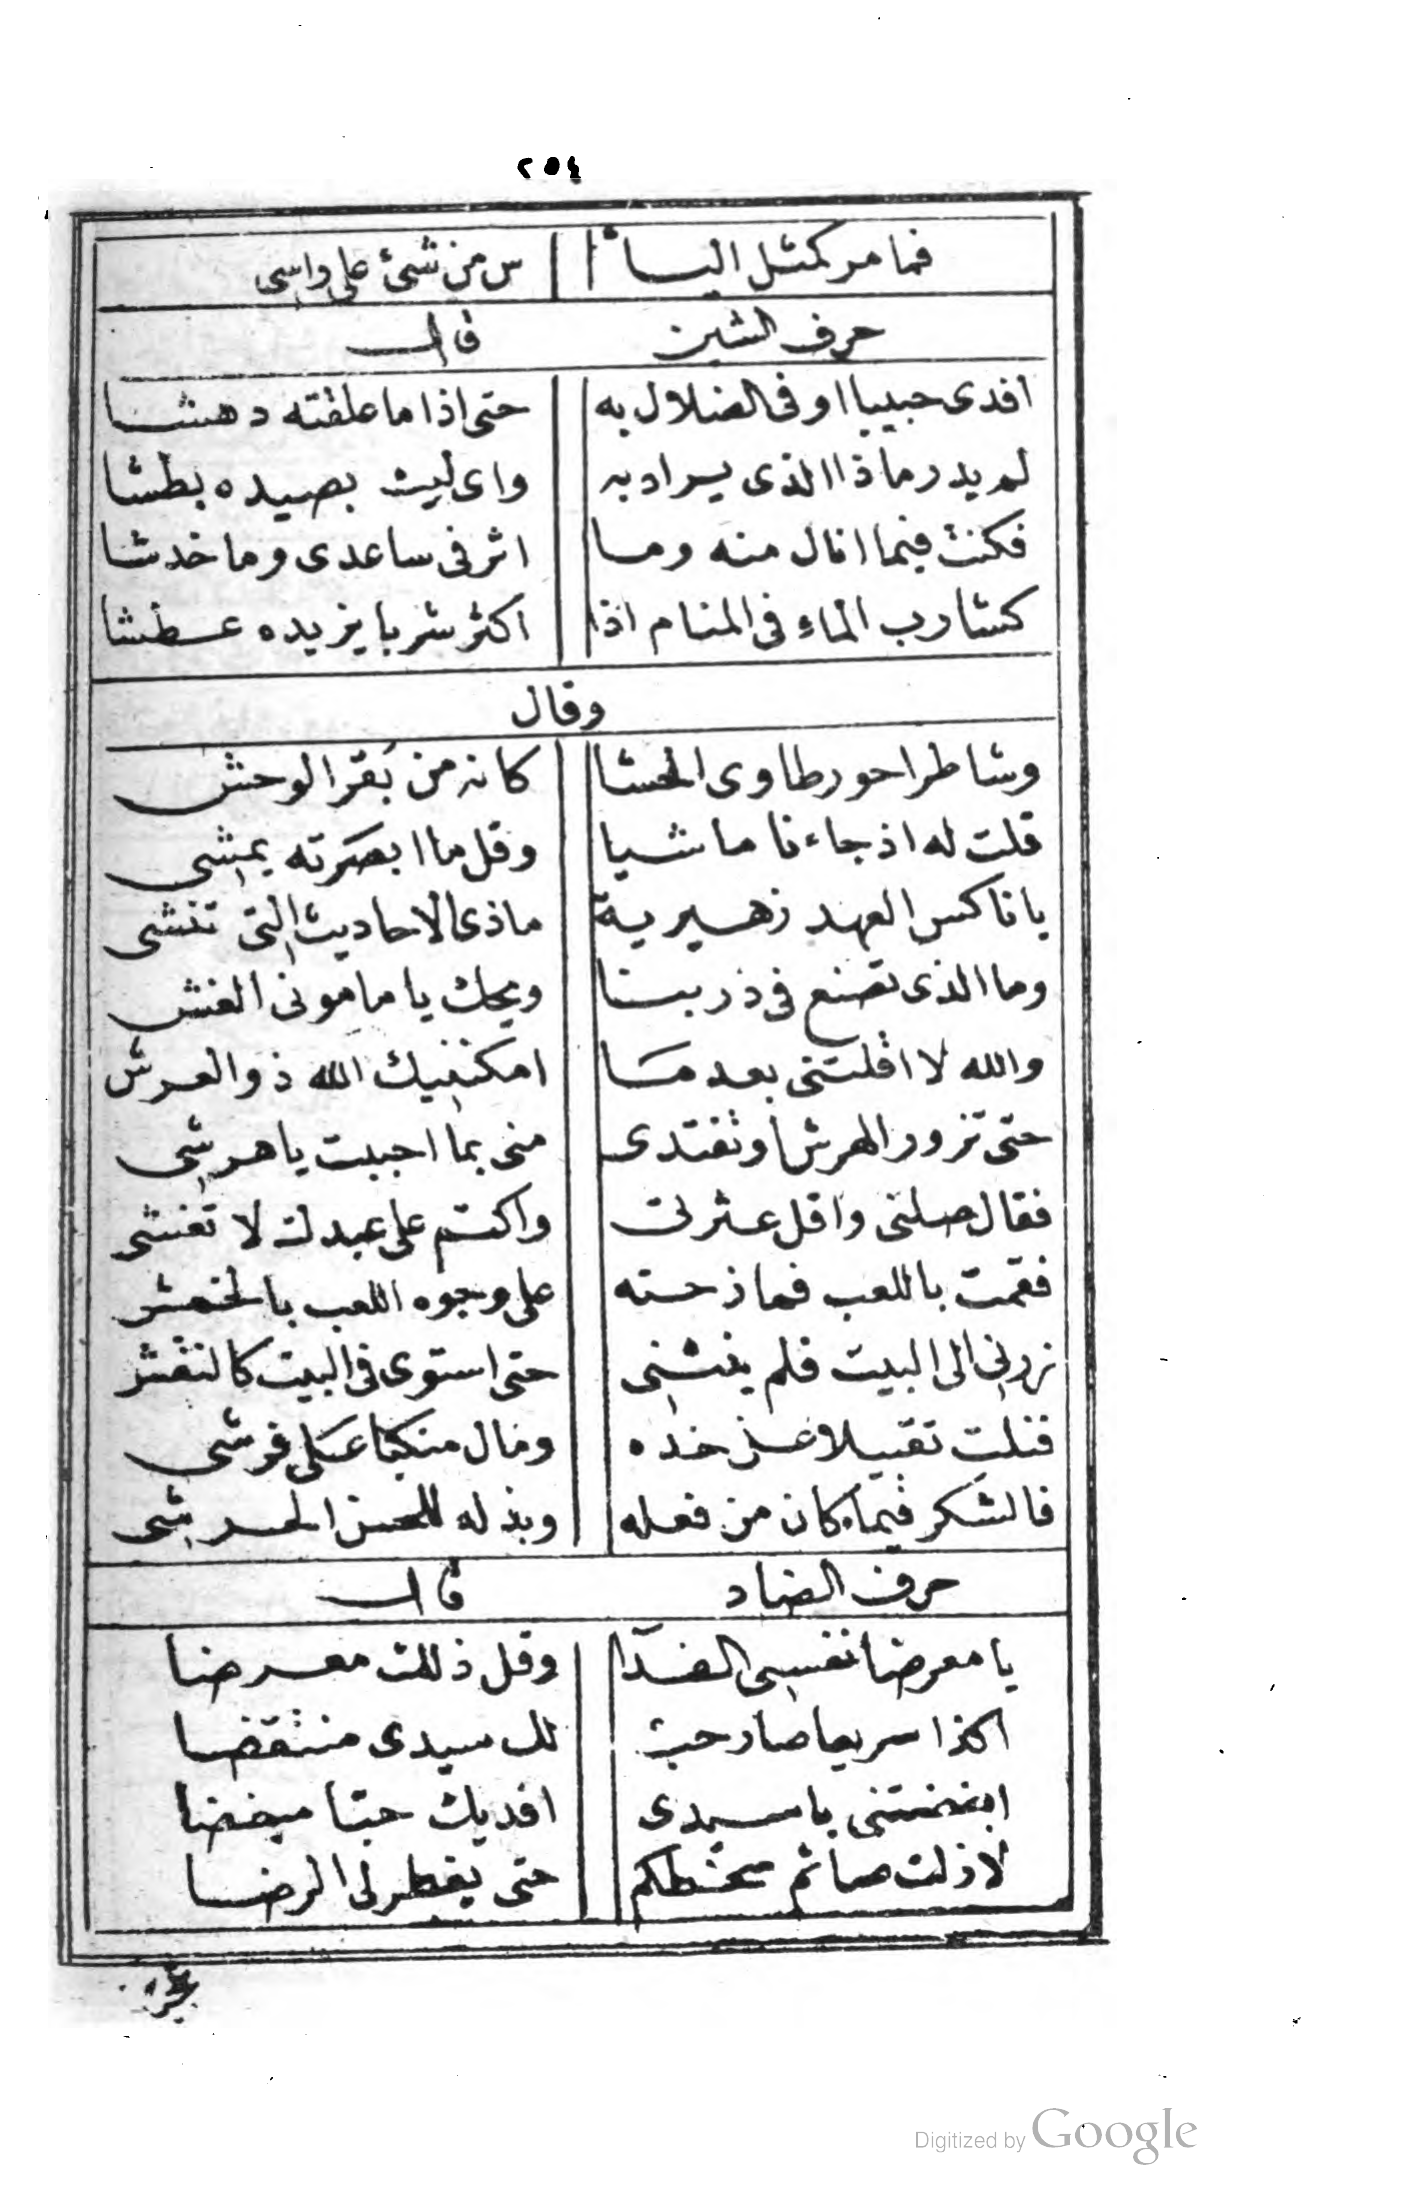 ٢٥٤
فما مر كمثل اليأ س من شئ على واسى
حرف الشين قال
افدى حبيبا اوفى الضلال به حتى اذا ما علقته دهشا
لم يدر ما ذا الذى يراد به واى ليث بصيده بطشا
فكنت فيما انال منه وما اثر فى ساعدى وما خدشا
كشارب الماء فى المنام اذا اكثر شربا يزيده عطشا
وقال
وشاطر احور طاوى الحشا كانه من بقر الوحش
قلت له اذ جاءنا ماشيا وقل ما ابصرته يمشى
يا ناكس العهد زهيرية ما ذى الاحاديث التى تفشى
وما الذى تصنع فى ذربنا ويحك يا مامونى الغش
والله لا افلتنى بعدما امكننيك الله ذو العرش
حتى تزور الهرش او تفتدى منى بما احببت يا هرشى
فقال صلنى واقل عثرتى واكتم على عبدك لا تفشى
فقمت باللعب فمازحته على وجوه اللعب بالخمش
نزرنى الى البيت فلم يغشنى حتى استوى فى البيت كالنقش
فنلت تقبيلا عن خده ومال منكبا على فرشى
فالشكر فيما كان من فعله وبذله للحسن الحر شى
حرف الضاد قال
يا معرضا نفسى الفدا وقل ذلك معرضا
اكذا سريعا صار حب لك سيدى منتقضا
ابغضتنى يا سيدى افديك حبا مبغضا
لا زلت صائم سخطكم حتى يفطرنى الرضا
Digitized by Google